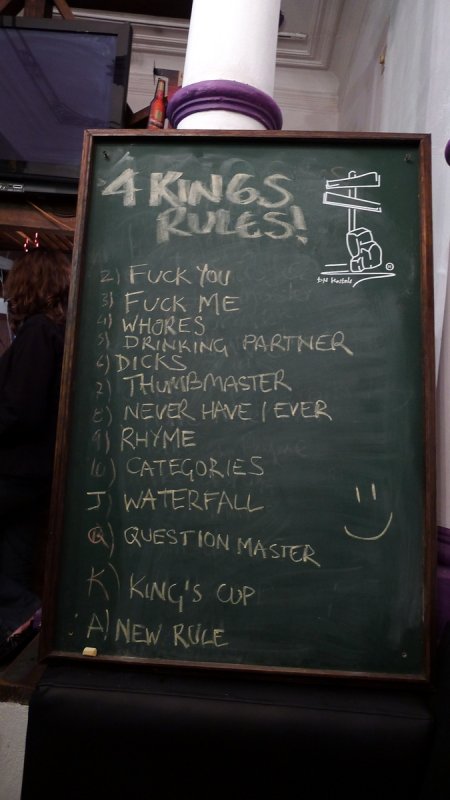 4 KINGS
RULES!
2) FUCK YOU
3) FUCK ME
4) WHORES
5) DRINKING PARTNER
6) DICKS
7) THUMBMASTER
8) NEVER HAVE I EVER
9) RHYME
10) CATEGORIES
J) WATERFALL
Q) QUESTION MASTER
K) KING'S CUP
A) NEW RULE